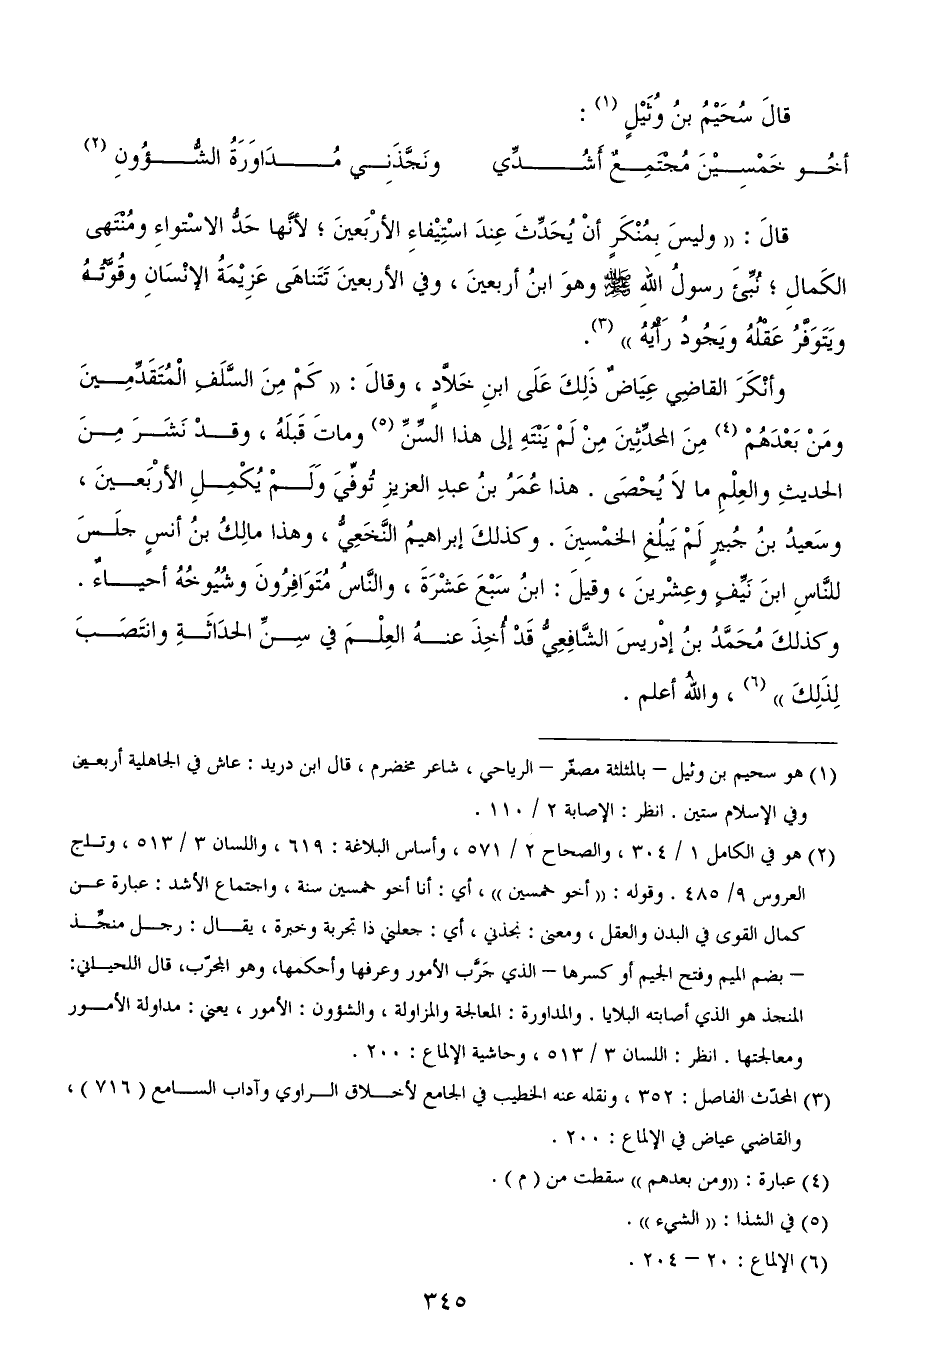 قالَ سُحَيْمُ بنُ وُثَيْلٍ (١) :
أخُـو خَمْسِـيْنَ مُجْتَمِـعٌ أَشُـدِّي ونَجَّذَنِـي مُـدَاوَرَةُ الشُّـؤُونِ (٢)
قالَ : (( وليسَ بِمُنْكَرٍ أنْ يُحَدِّثَ عِندَ اسْتِيْفاءِ الأرْبَعينَ ؛ لأنَّها حَدُّ الاسْتواءِ ومُنْتَهى
الكَمالِ ؛ نُبِّئَ رسولُ اللهِ ﷺ وهوَ ابنُ أربعينَ ، وفي الأربعينَ تَتَناهَى عَزِيْمَةُ الإنْسَانِ وقُوَّتُـهُ
ويَتَوَفَّرُ عَقْلُهُ ويَجُودُ رَأْيُهُ )) (٣).
وأنْكَرَ القاضِي عِيَاضٌ ذَلِكَ عَلَى ابنِ خَلاَّدٍ ، وقالَ : (( كَمْ مِنَ السَّلَفِ الْمُتَقَدِّمِـينَ
ومَنْ بَعْدَهُمْ (٤) مِنَ المُحدِّثِينَ مِنْ لَمْ يَنْتَهِ إلى هذا السِّنِّ (٥) وماتَ قَبلَهُ ، وقـدْ نَشَـرَ مِـنَ
الحديثِ والعِلْمِ ما لاَ يُحْصَى . هذا عُمَرُ بنُ عبدِ العزيزِ تُوفِّيَ وَلَـمْ يُكْمِـلِ الأرْبَعـينَ ،
وسَعيدُ بنُ جُبيرٍ لَمْ يَبلُغِ الخمْسِينَ . وكذلكَ إبراهيمُ النَّخَعِيُّ ، وهذا مالِكُ بنُ أنسٍ جلَـسَ
للنَّاسِ ابنَ نَيِّفٍ وعِشْرينَ ، وقيلَ : ابنُ سَبْعَ عَشْرَةَ ، والنَّاسُ مُتَوَافِرُونَ وشُيُوخُهُ أحيـاءٌ .
وكذلكَ مُحَمَّدُ بنُ إدْريسَ الشَّافِعِيُّ قَدْ أُخِذَ عنـهُ العِلْـمَ في سِـنِّ الحَداثَـةِ وانتَصَـبَ
لِذَلِكَ )) (٦) ، واللهُ أعلم .
(١) هو سحيم بن وثيل – بالمثلثة مصغّر – الرياحي ، شاعر مخضرم ، قال ابن دريد : عاش في الجاهلية أربعين
وفي الإسلام ستين . انظر : الإصابة ٢ / ١١٠ .
(٢) هو في الكامل ١ / ٣٠٤ ، والصحاح ٢ / ٥٧١ ، وأساس البلاغة : ٦١٩ ، واللسان ٣ / ٥١٣ ، وتـاج
العروس ٩/ ٤٨٥ . وقوله : (( أخو خمسين )) ، أي : أنا أخو خمسين سنة ، واجتماع الأشد : عبارة عـن
كمال القوى في البدن والعقل ، ومعنى : نجذني ، أي : جعلني ذا تجربة وخبرة ، يقـال : رجـل منجَّـذ
– بضم الميم وفتح الجيم أو كسرها – الذي جَرَّب الأمور وعرفها وأحكمها، وهو المجرّب، قال اللحيـاني:
المنجذ هو الذي أصابته البلايا . والمداورة : المعالجة والمزاولة ، والشؤون : الأمور ، يعني : مداولة الأمـور
ومعالجتها . انظر : اللسان ٣ / ٥١٣ ، وحاشية الإلماع : ٢٠٠ .
(٣) المحدّث الفاصل : ٣٥٢ ، ونقله عنه الخطيب في الجامع لأخـلاق الـراوي وآداب السـامع ( ٧١٦ ) ،
والقاضي عياض في الإلماع : ٢٠٠ .
(٤) عبارة : ((ومن بعدهم )) سقطت من ( م ) .
(٥) في الشذا : (( الشيء )) .
(٦) الإلماع : ٢٠ – ٢٠٤ .
٣٤٥